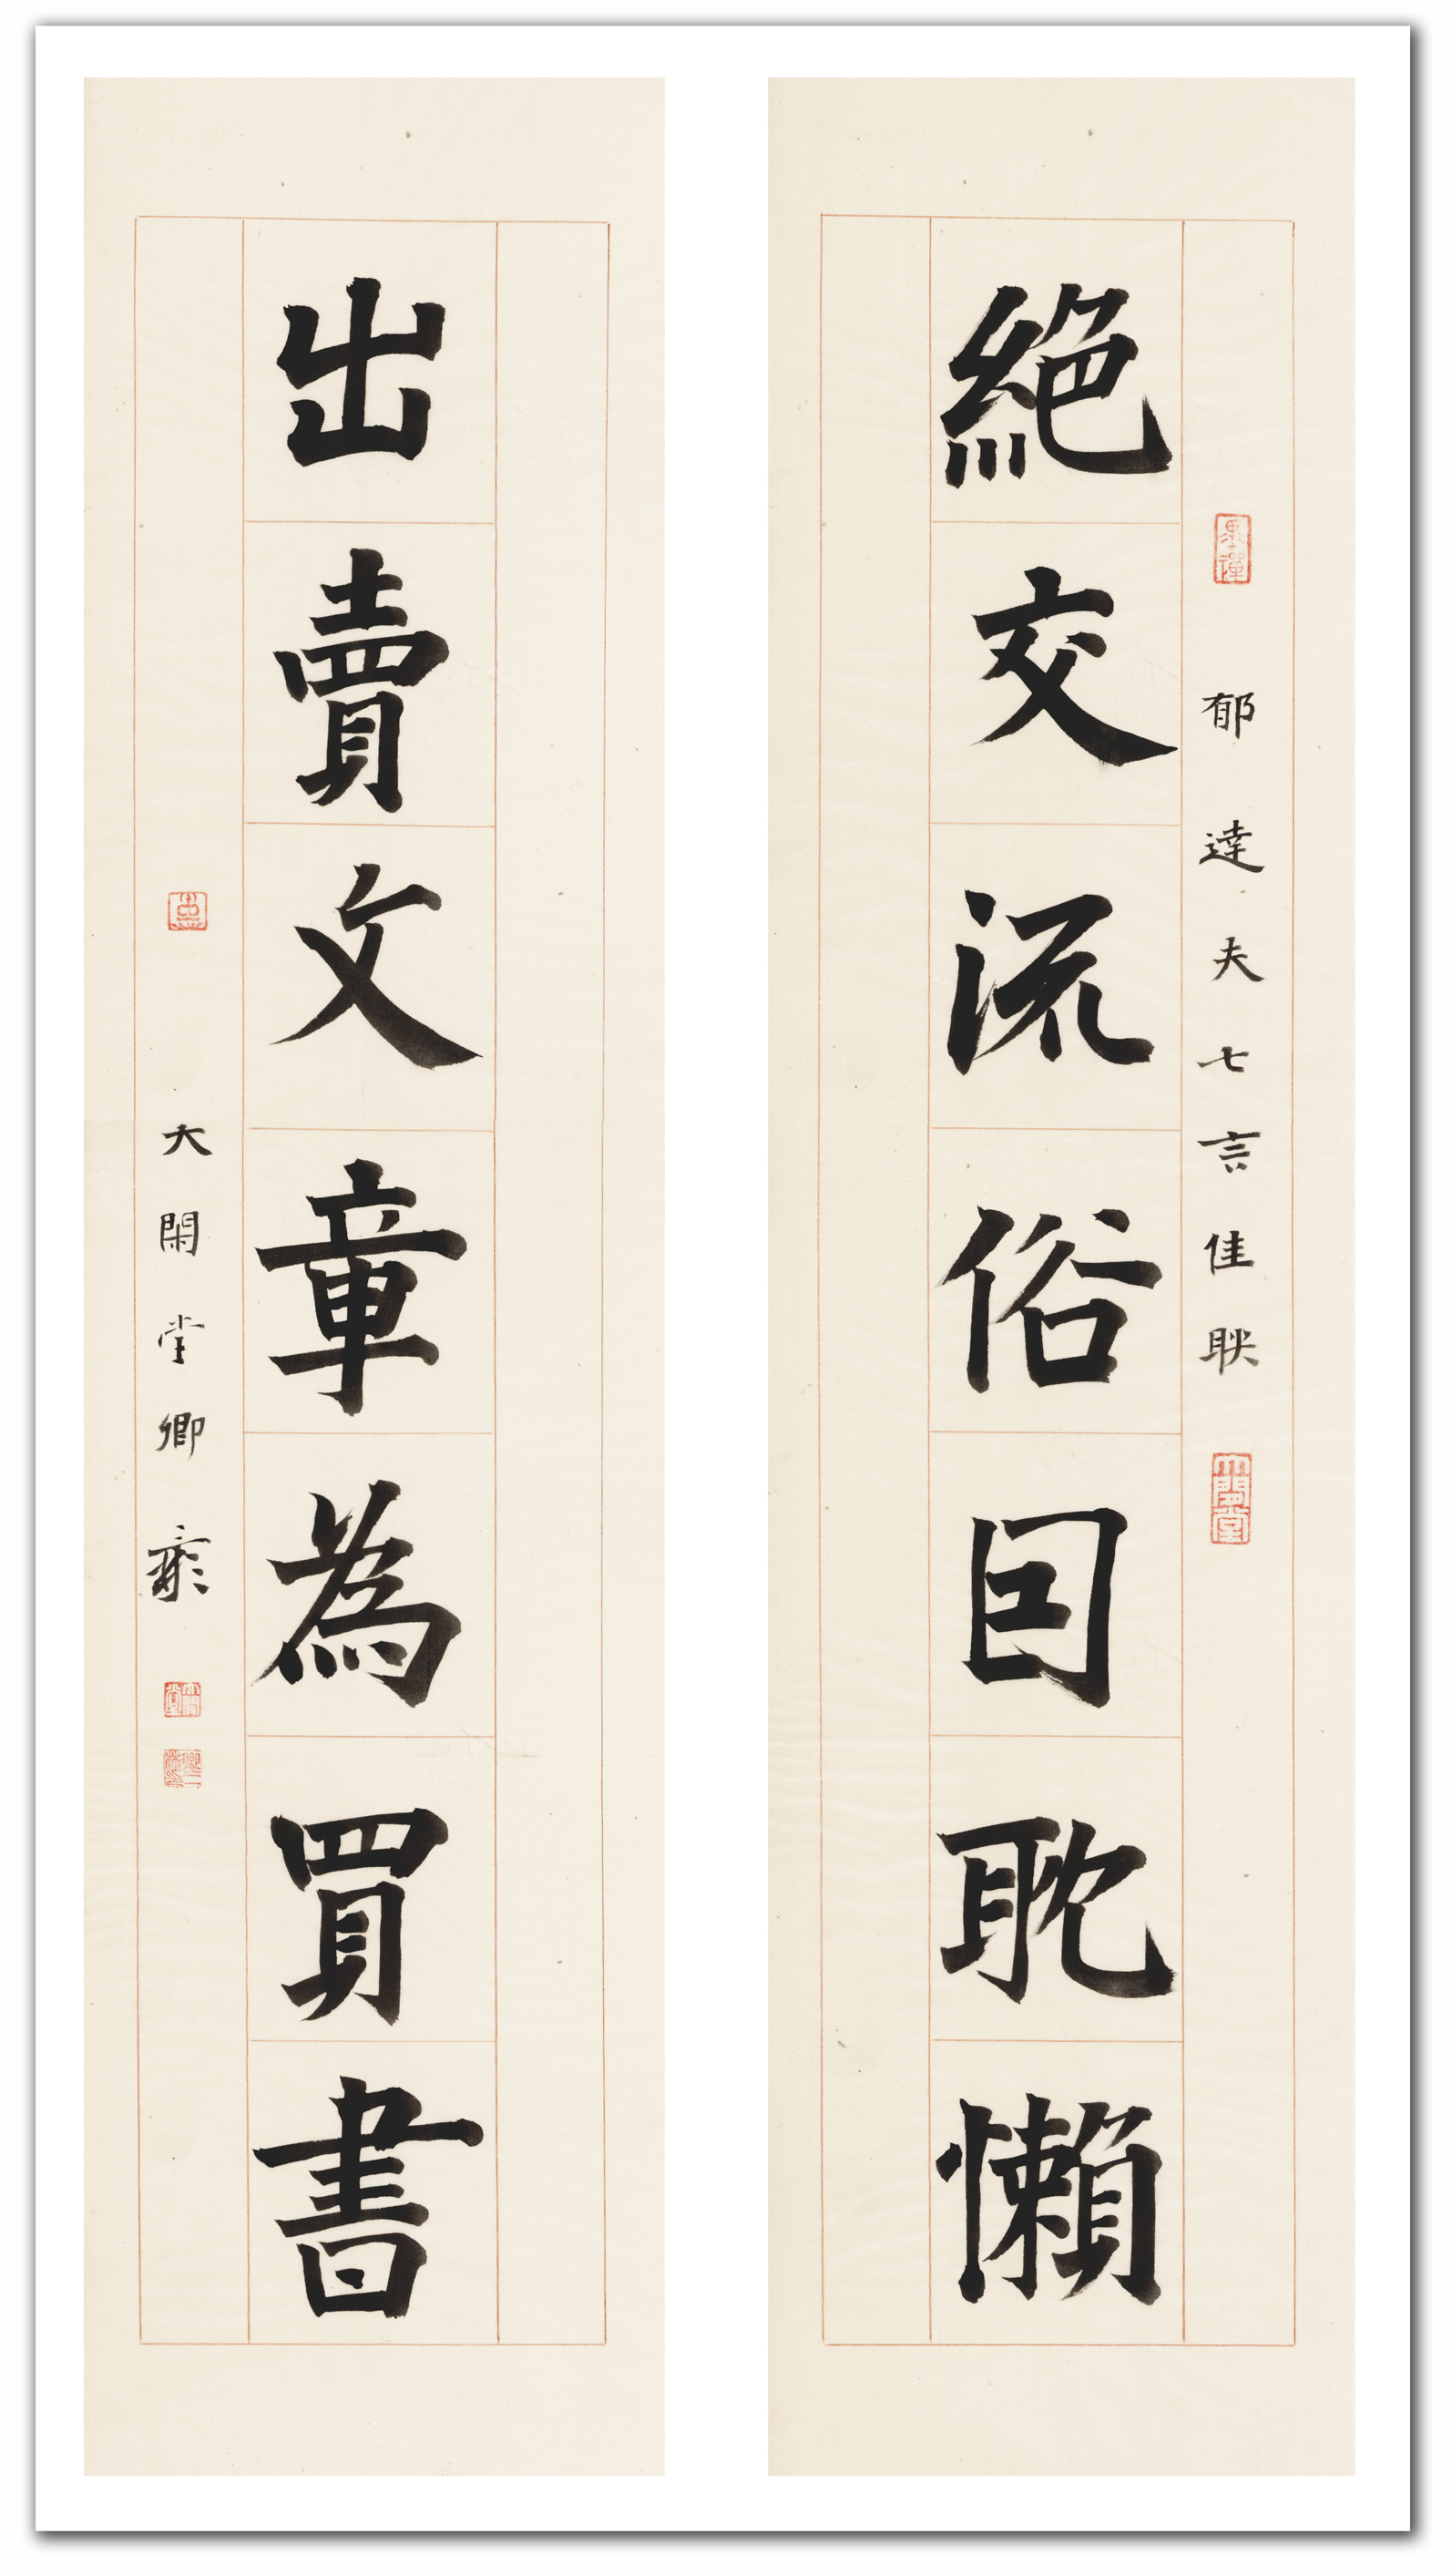 絕交流俗因耽懶
郁達夫七言佳联
出賣文章為買書
大閑堂卿